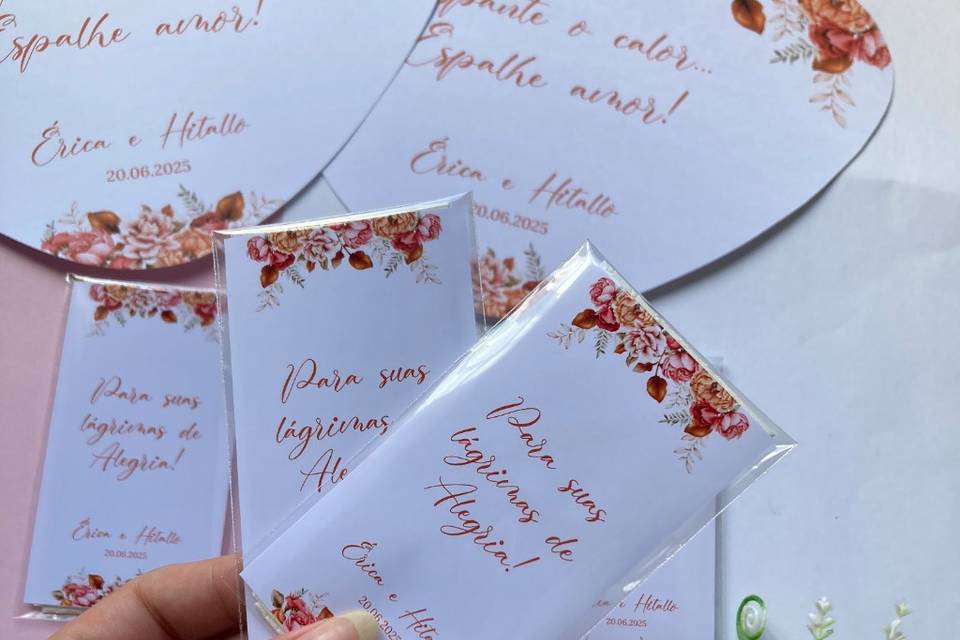 Espalhe amor!
Érica e Hitallo
20.06.2025
o calor...
Espalhe amor!
Érica e Hitallo
20.06.2025
Para suas
lágrimas de
Alegria!
Érica e Hitallo
20.06.2025
Para suas
lágrimas
Para suas
lágrimas de
Alegria!
Érica e
20.06.2025
e Hitallo
20.06.2025